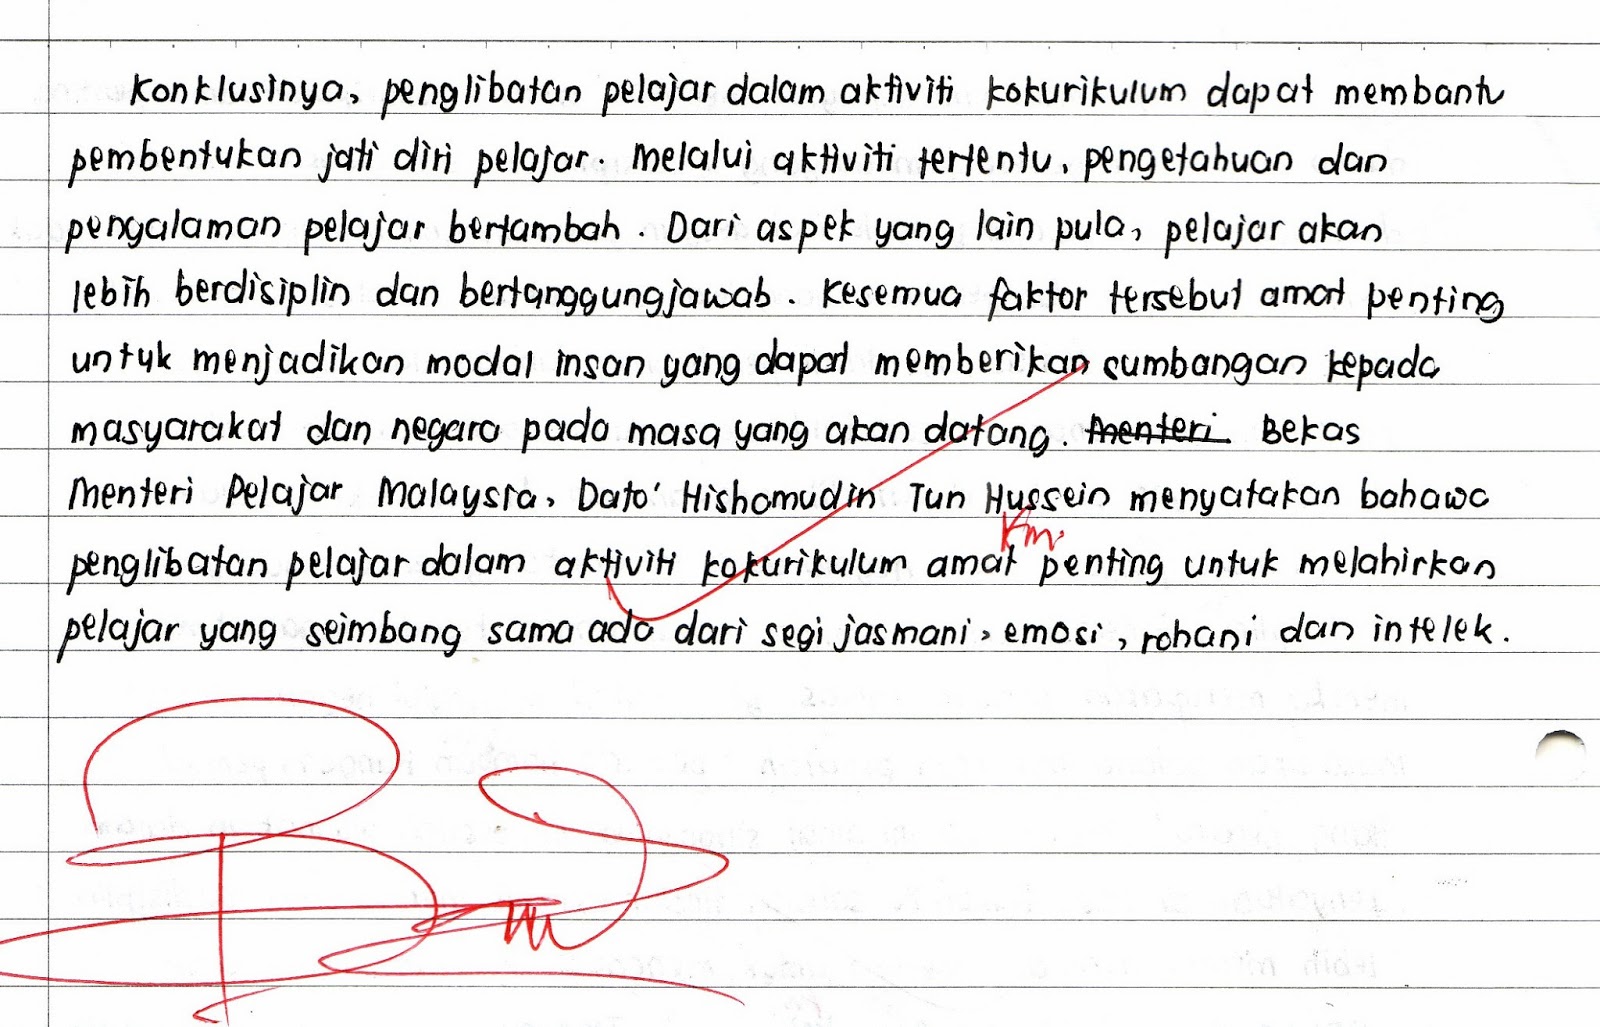 Konklusinya, penglibatan pelajar dalam aktiviti kokurikulum dapat membantu
pembentukan jati diri pelajar. Melalui aktiviti tertentu, pengetahuan dan
pengalaman pelajar bertambah. Dari aspek yang lain pula, pelajar akan
lebih berdisiplin dan bertanggungjawab. Kesemua faktor tersebut amat penting
untuk menjadikan modal insan yang dapat memberikan sumbangan kepada
masyarakat dan negara pada masa yang akan datang. Menteri Bekas
Menteri Pelajar Malaysia, Dato' Hishamudin Tun Hussein menyatakan bahawa
Km
penglibatan pelajar dalam aktiviti kokurikulum amat penting untuk melahirkan
pelajar yang seimbang sama ada dari segi jasmani, emosi, rohani dan intelek.